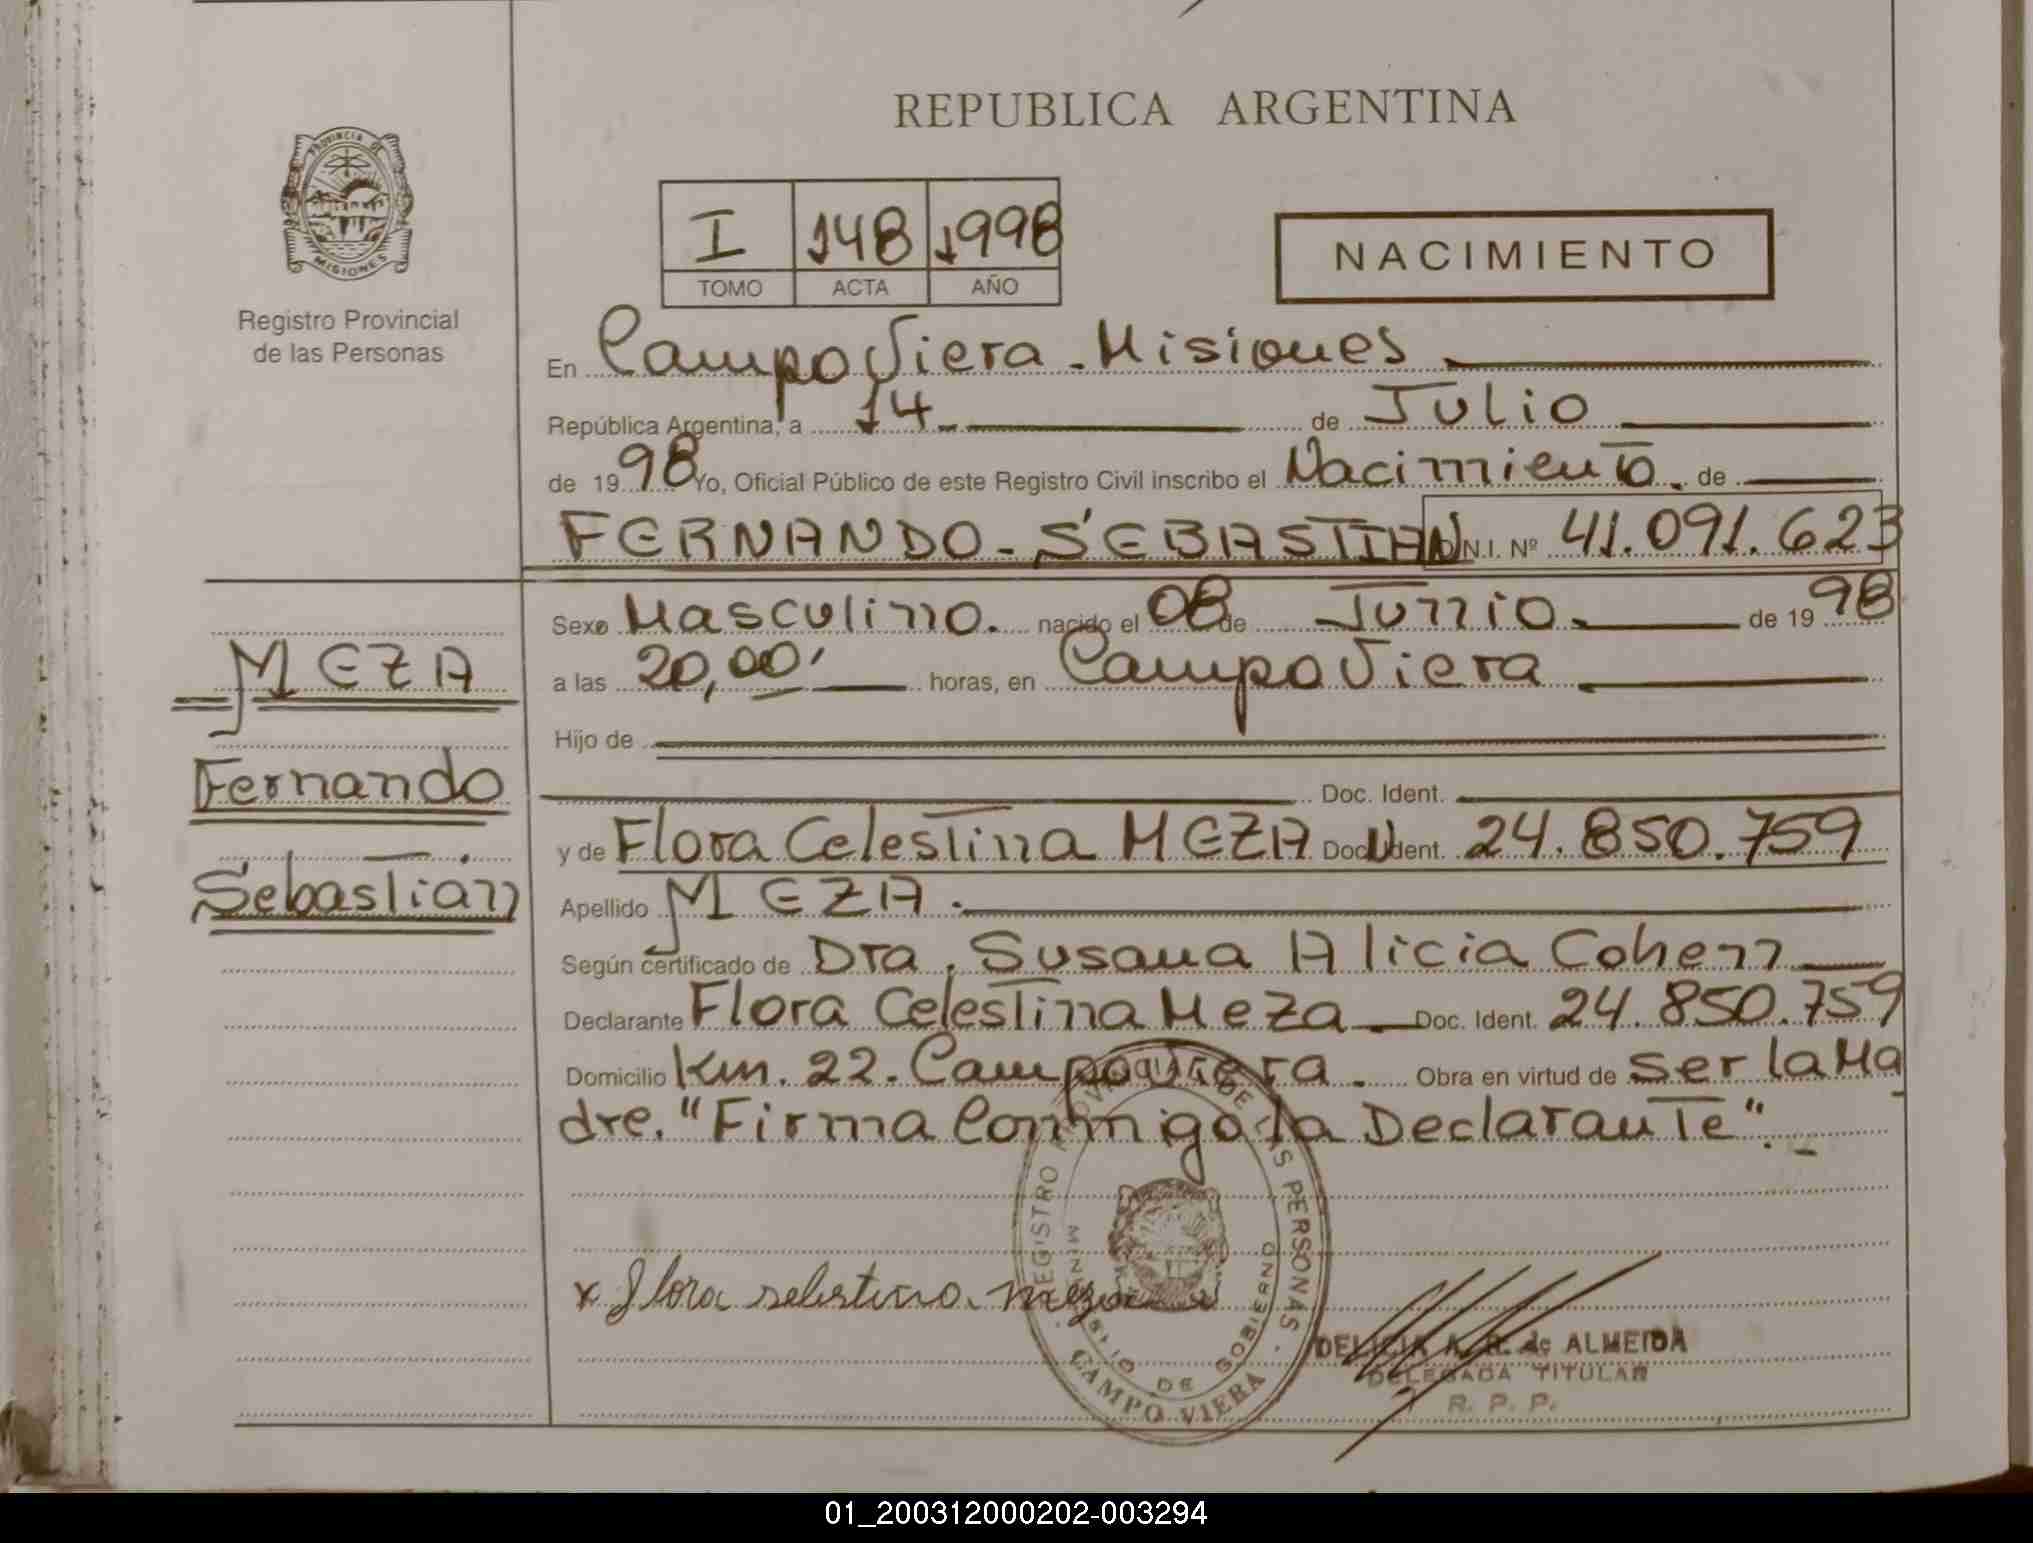 REPUBLICA ARGENTINA
PROVINCIA DE MISIONES
Registro Provincial
de las Personas
I 148 1998
TOMO ACTA AÑO
NACIMIENTO
En Campo Viera - Misiones
República Argentina, a 14 de Julio
de 19 98 Yo, Oficial Público de este Registro Civil inscribo el Nacimiento. de
FERNANDO - SEBASTIAN D.N.I. Nº 41.091.623
Sexo Masculino. nacido el 08 de Junio. de 19 98
a las 20,00' horas, en Campo Viera
Hijo de
Doc. Ident.
y de Flora Celestina MEZA Doc. Ident. 24.850.759
Apellido MEZA.
Según certificado de Dra. Susana Alicia Cohen
Declarante Flora Celestina Meza Doc. Ident. 24.850.759
Domicilio Km. 22. Campo Viera. Obra en virtud de ser la Ma
dre. "Firma Conmigo la Declarante".-
MEZA
Fernando
Sebastián
x flora selestina meza
REGISTRO PROVINCIAL DE LAS PERSONAS
MINISTERIO DE GOBIERNO
CAMPO VIERA
DELICIA A. R. de ALMEIDA
DELEGADA TITULAR
R. P. P.
01_200312000202-003294